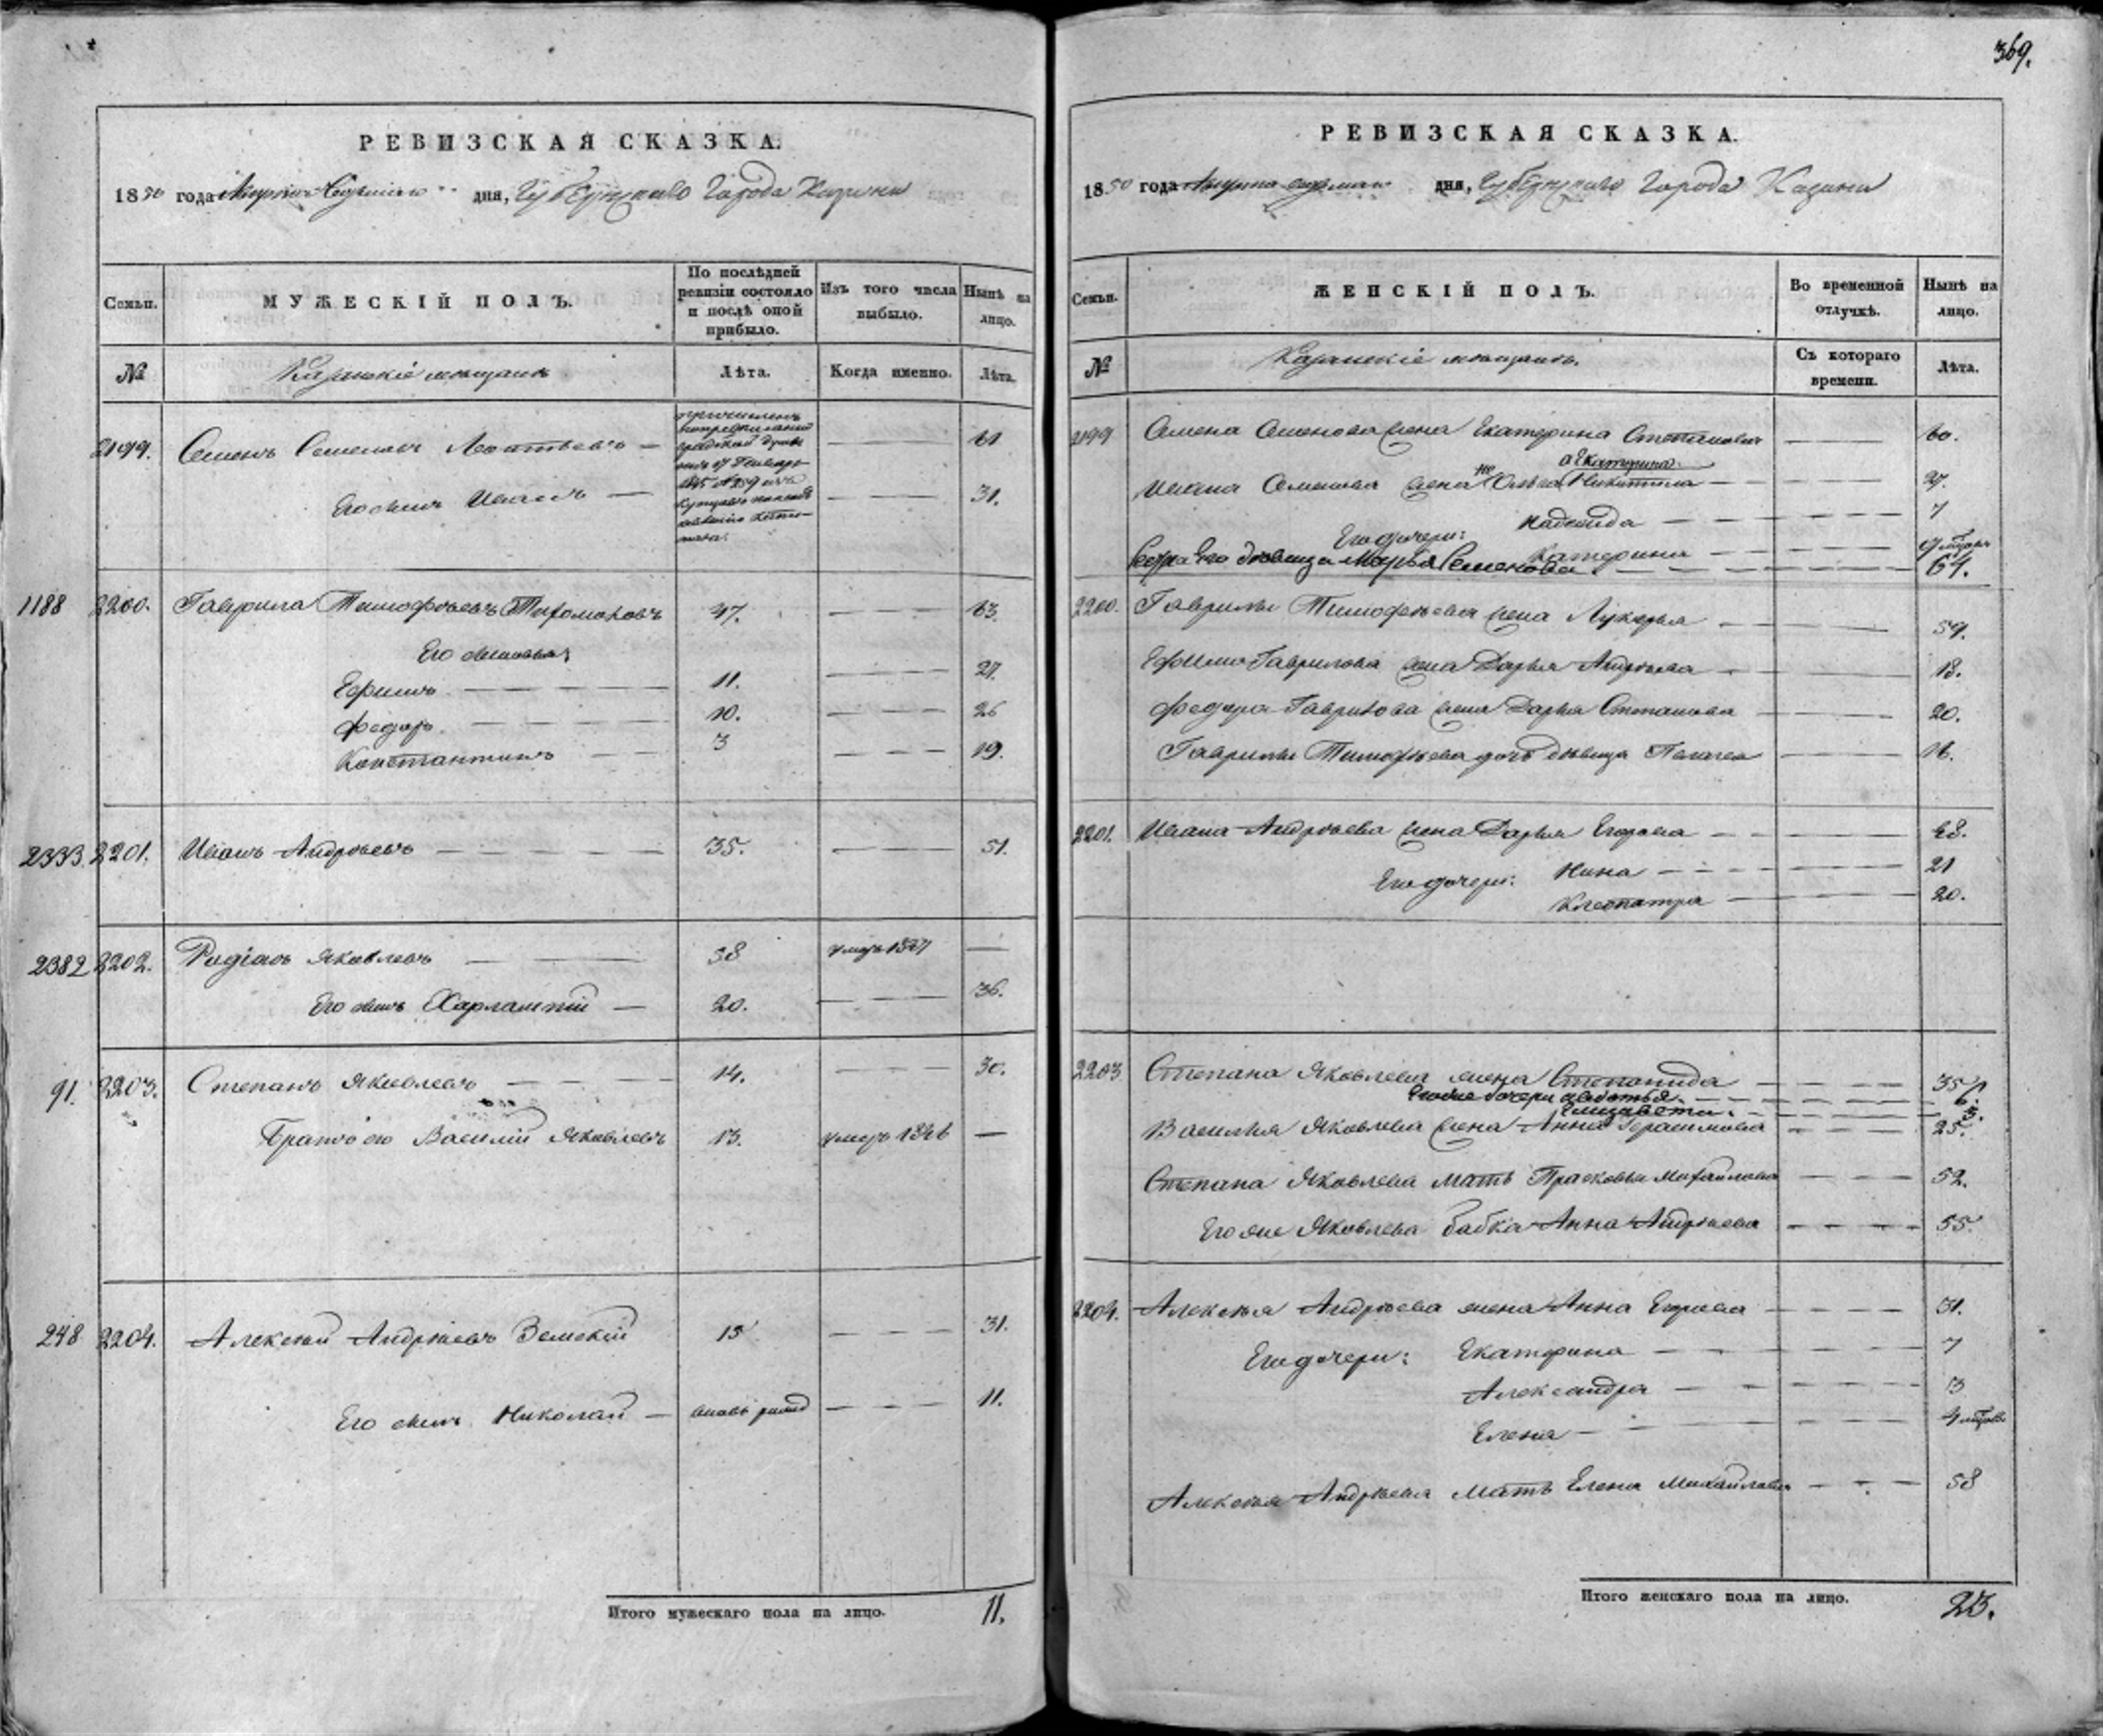 369.
РЕВИЗСКАЯ СКАЗКА.
1850 года дня, Губернскаго Города Казани
Семьи. МУЖЕСКІЙ ПОЛЪ. По послѣдней ревизіи состояло и послѣ оной прибыло. Изъ того числа выбыло. Нынѣ на лицо.
№ Казанскіе мѣщане Лѣта. Когда именно. Лѣта.
2199. Семенъ Семеновъ Леонтьевъ 61
Его сынъ Иванъ 31.
1188 2200. Гаврила Тимофѣевъ 47. 63.
Его сыновья:
Ефимъ 11. 27.
Федоръ 10. 26
Константинъ 3 19.
2333. 2201. Иванъ Андрѣевъ 35. 51.
2382 2202. Родіонъ Яковлевъ 38 умеръ
Его сынъ Харлампій 20. 36.
91. 2203. Степанъ Яковлевъ 14. 30.
Братъ его Василій Яковлевъ 13. умеръ 1846
248 2204. Алексѣй Андрѣевъ Земскій 15 31.
Его сынъ Николай 11.
Итого мужескаго пола на лицо. 11.
РЕВИЗСКАЯ СКАЗКА.
1850 года дня, Губернскаго Города Казани
Семьи. ЖЕНСКІЙ ПОЛЪ. Во временной отлучкѣ. Нынѣ на лицо.
№ Казанскіе мѣщане. Съ котораго времени. Лѣта.
2199 Семена Семенова жена Екатерина Степанова 60.
а Екатерина
Ивана Семенова жена не Ольга Никитина 27.
Его дочери: Надежда 7
Катерина
Сестра Его дѣвица Марья Семенова 64.
2200. Гаврилы Тимофѣева жена Лукерья 59.
Ефима Гаврилова жена Дарья Андрѣева 18.
Федора Гаврилова жена Дарья Степанова 20.
Гаврилы Тимофѣева дочь дѣвица Пелагея 16.
2201. Ивана Андрѣева жена Дарья Егорова 48.
Его дочери: Нина 21
Клеопатра 20.
2203 Степана Яковлева жена Степанида 35
Его же дочери Авдотья 6.
Елизавета 3.
Василья Яковлева жена Анна Герасимова 25.
Степана Яковлева мать Прасковья Михайлова 52.
Его же Яковлева бабка Анна Андрѣева 55.
2204. Алексѣя Андрѣева жена Анна Егорова 31.
Его дочери: Екатерина 7
Александра 3
Елена 4
Алексѣя Андрѣева мать Елена Михайлова 58
Итого женскаго пола на лицо. 23.